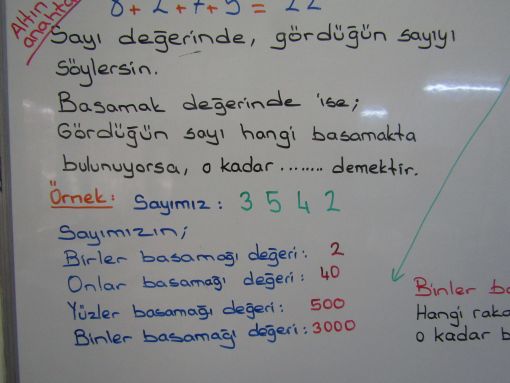 Altın
anahta
8 + 2 + 7 + 5 = 22
Sayı değerinde, gördüğün sayıyı
söylersin.
Basamak değerinde ise;
Gördüğün sayı hangi basamakta
bulunuyorsa, o kadar ........ demektir.
Örnek: Sayımız : 3 5 4 2
Sayımızın;
Birler basamağı değeri : 2
Onlar basamağı değeri : 40
Yüzler basamağı değeri : 500
Binler basamağı değeri : 3000
Binler ba
Hangi raka
o kadar b